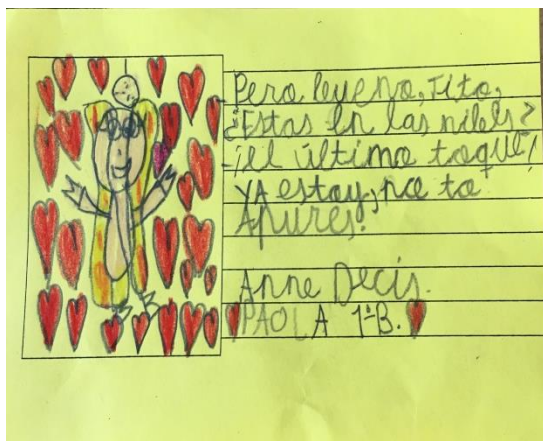 Pero bueno, Tito,
¿Estas en las nubes?
¡el último toque!
YA estoy, no te
Apures.
Anne Decis.
PAOLA 1ºB.